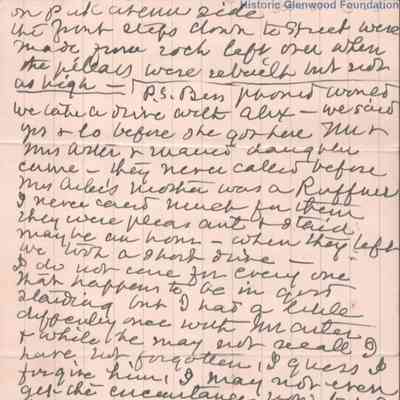 Historic Glenwood Foundation
on Park avenue side
the front steps down to street were
made from rock left over when
the pillars were rebuilt but not
as high — P.S. Bess phoned would
we take a drive with Alex — we said
yes & lo before she got here Mr &
Mrs Arter & married daughter
came — they never called before
Mrs Arter's mother was a Ruffner
I never cared much for them
they were pleasant & staid
maybe an hour — when they left
we took a short drive —
I do not care for every one
that happens to be in good
standing but I had a little
difficulty once with Mr Arter
& while he may not recall I
have not forgotten, I guess I
forgive him, I may not even
get the circumstances